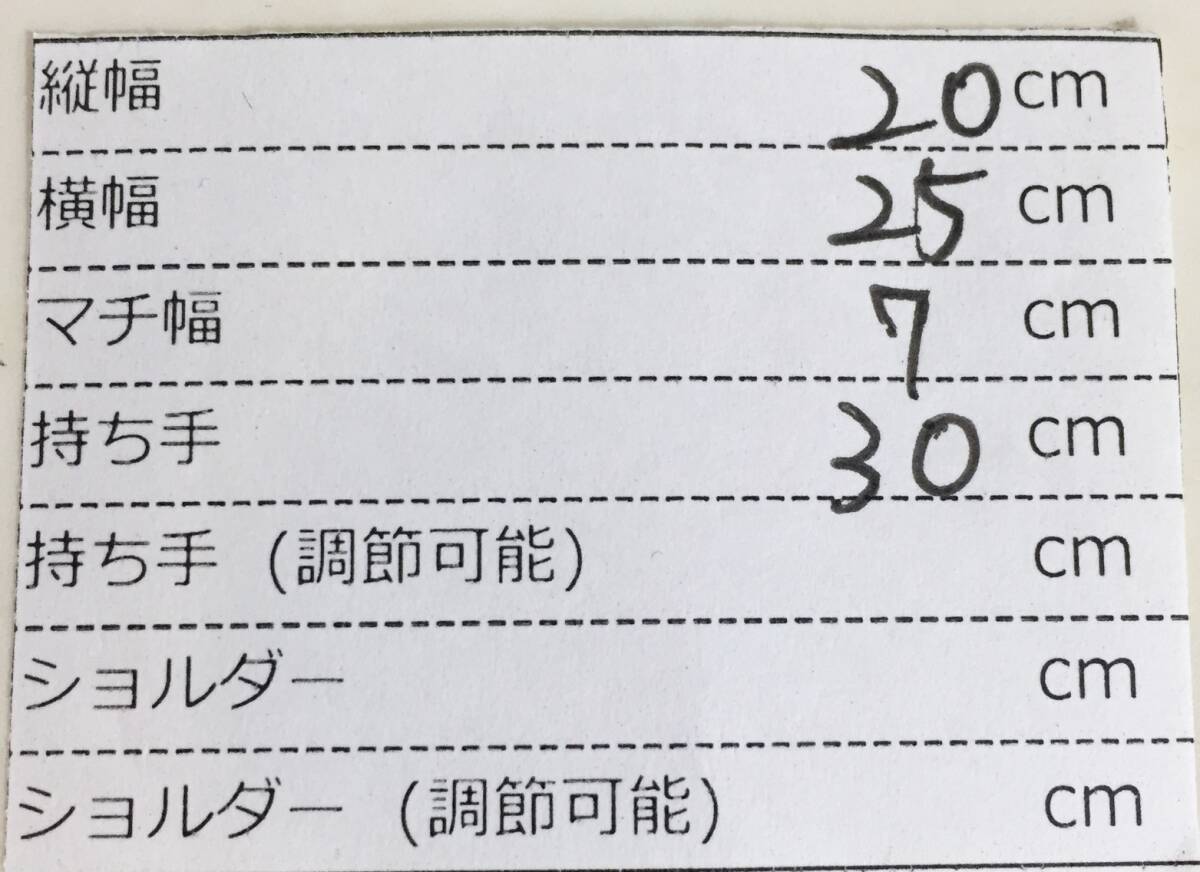 縦幅 20 cm
横幅 25 cm
マチ幅 7 cm
持ち手 30 cm
持ち手 (調節可能) cm
ショルダー cm
ショルダー (調節可能) cm